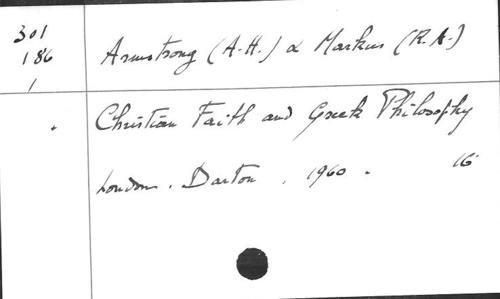 301
186
1
Armstrong (A.H.) & Markus (R.A.)
Christian Faith and Greek Philosophy
London. Darton, 1960. 16